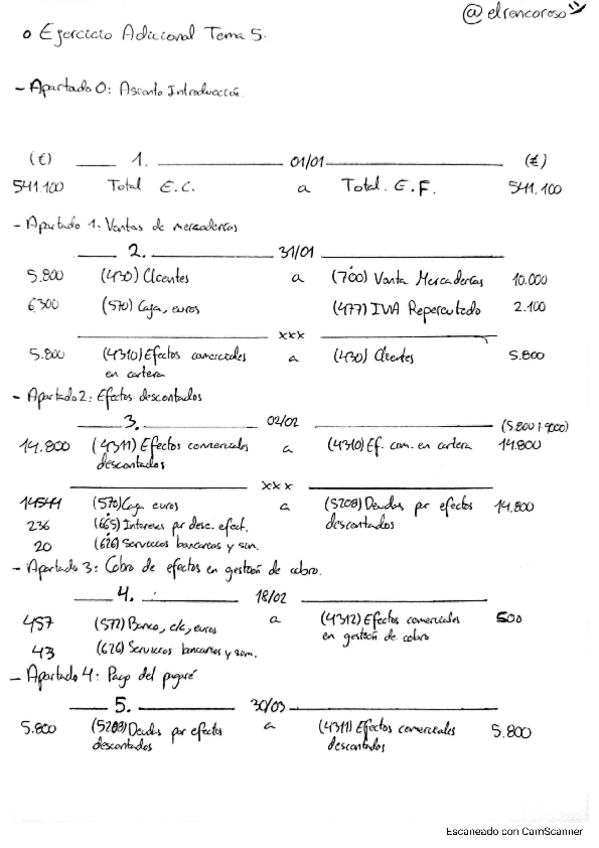 @elrencoroso
o Ejercicio Adicional Tema 5.
- Apartado 0: Asiento Introducción.
(€) 1. 01/01 (€)
541.100 Total E.C. a Total E.F. 541.100
- Apartado 1: Ventas de mercaderías
2. 31/01
5.800 (430) Clientes a (700) Venta Mercaderías 10.000
6300 (570) Caja, euros (477) IVA Repercutido 2.100
xxx
5.800 (4310) Efectos comerciales a (430) Clientes 5.800
en cartera
- Apartado 2: Efectos descontados
3. 02/02 (5.800 | 9000)
14.800 (4311) Efectos comerciales a (4310) Ef. com. en cartera 14.800
descontados
xxx
14544 (570) Caja euros a (5208) Deudas por efectos 14.800
236 (665) Intereses por desc. efect. descontados
20 (626) Servicios bancarios y sim.
- Apartado 3: Cobro de efectos en gestión de cobro.
4. 18/02
457 (572) Banco, c/c, euros a (4312) Efectos comerciales 500
43 (626) Servicios bancarios y sim. en gestión de cobro
- Apartado 4: Pago del pagaré
5. 30/03
5.800 (5208) Deudas por efectos a (4311) Efectos comerciales 5.800
descontados descontados
Escaneado con CamScanner